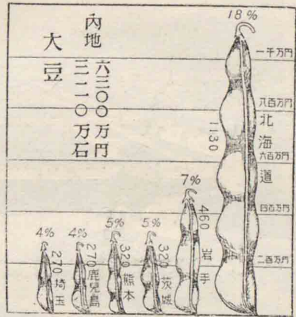 大豆
内地 六三〇〇万円
三一二〇万石
18%
一千万円
八百万円
六百万円
四百万円
二百万円
北海道
1130
7%
460
岩手
5%
320
茨城
5%
320
熊本
4%
270
鹿児島
4%
270
埼玉